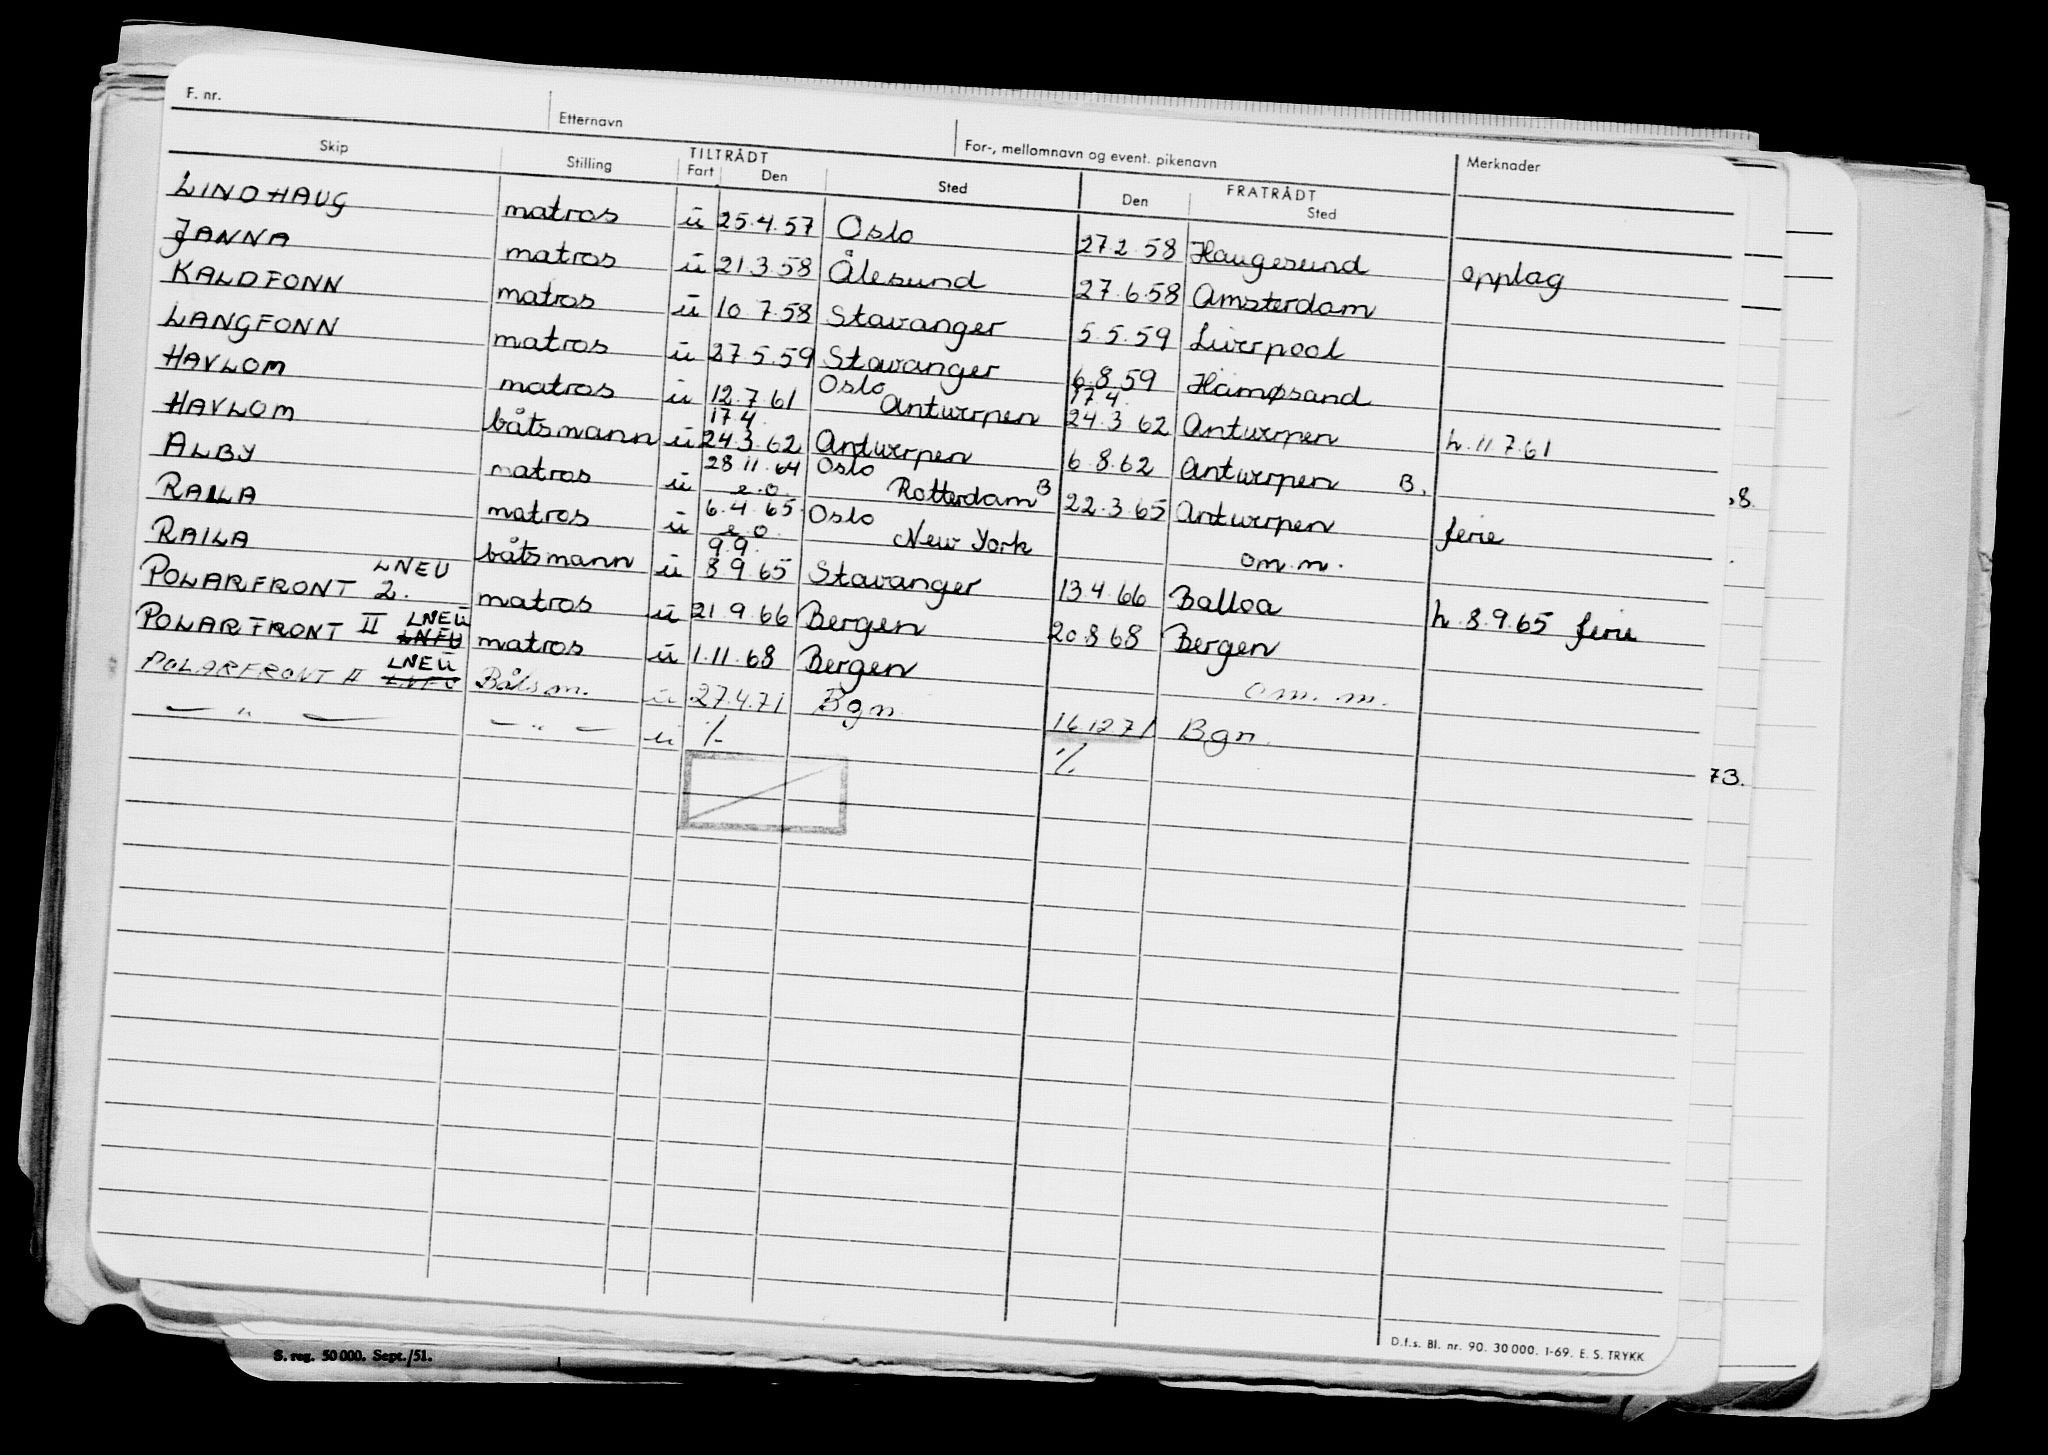 F. nr. Etternavn For-, mellomnavn og event. pikenavn Merknader
Skip Stilling TILTRÅDT Fart Den Sted FRATRÅDT Den Sted
LINDHAUG matros ū 25.4.57 Oslo 27.2.58 Haugesund opplag
JANNA matros ū 21.3.58 Ålesund 27.6.58 Amsterdam
KALDFONN matros ū 10.7.58 Stavanger 5.5.59 Liverpool
LANGFONN matros ū 27.5.59 Stavanger 6.8.59 Härnøsand
HAVLOM matros ū 12.7.61 Oslo Antwerpen 17.4. 24.3.62 Antwerpen h. 11.7.61
HAVLOM båtsmann ū 17.4. 24.3.62 Antwerpen 6.8.62 Antwerpen B.
ALBY matros ū 28.11.64 e.o. Oslo Rotterdam B 22.3.65 Antwerpen ferie
RAILA matros ū 6.4.65. e.o. Oslo New York om.m.
RAILA båtsmann ū 9.9. 8.9.65 Stavanger 13.4.66 Balboa h. 8.9.65 ferie
POLARFRONT 2. LNEU matros ū 21.9.66 Bergen 20.8.68 Bergen
POLARFRONT II LNEU LNEU matros ū 1.11.68 Bergen om.m.
POLARFRONT II LNEU Båtsm. u 27.4.71 Bgn 16.12.71 Bgn.
— " — — " — u %. %.
8.
73.
D.f.s. Bl. nr. 90. 30 000. 1-69. E. S. TRYKK
S. reg. 50 000. Sept./51.